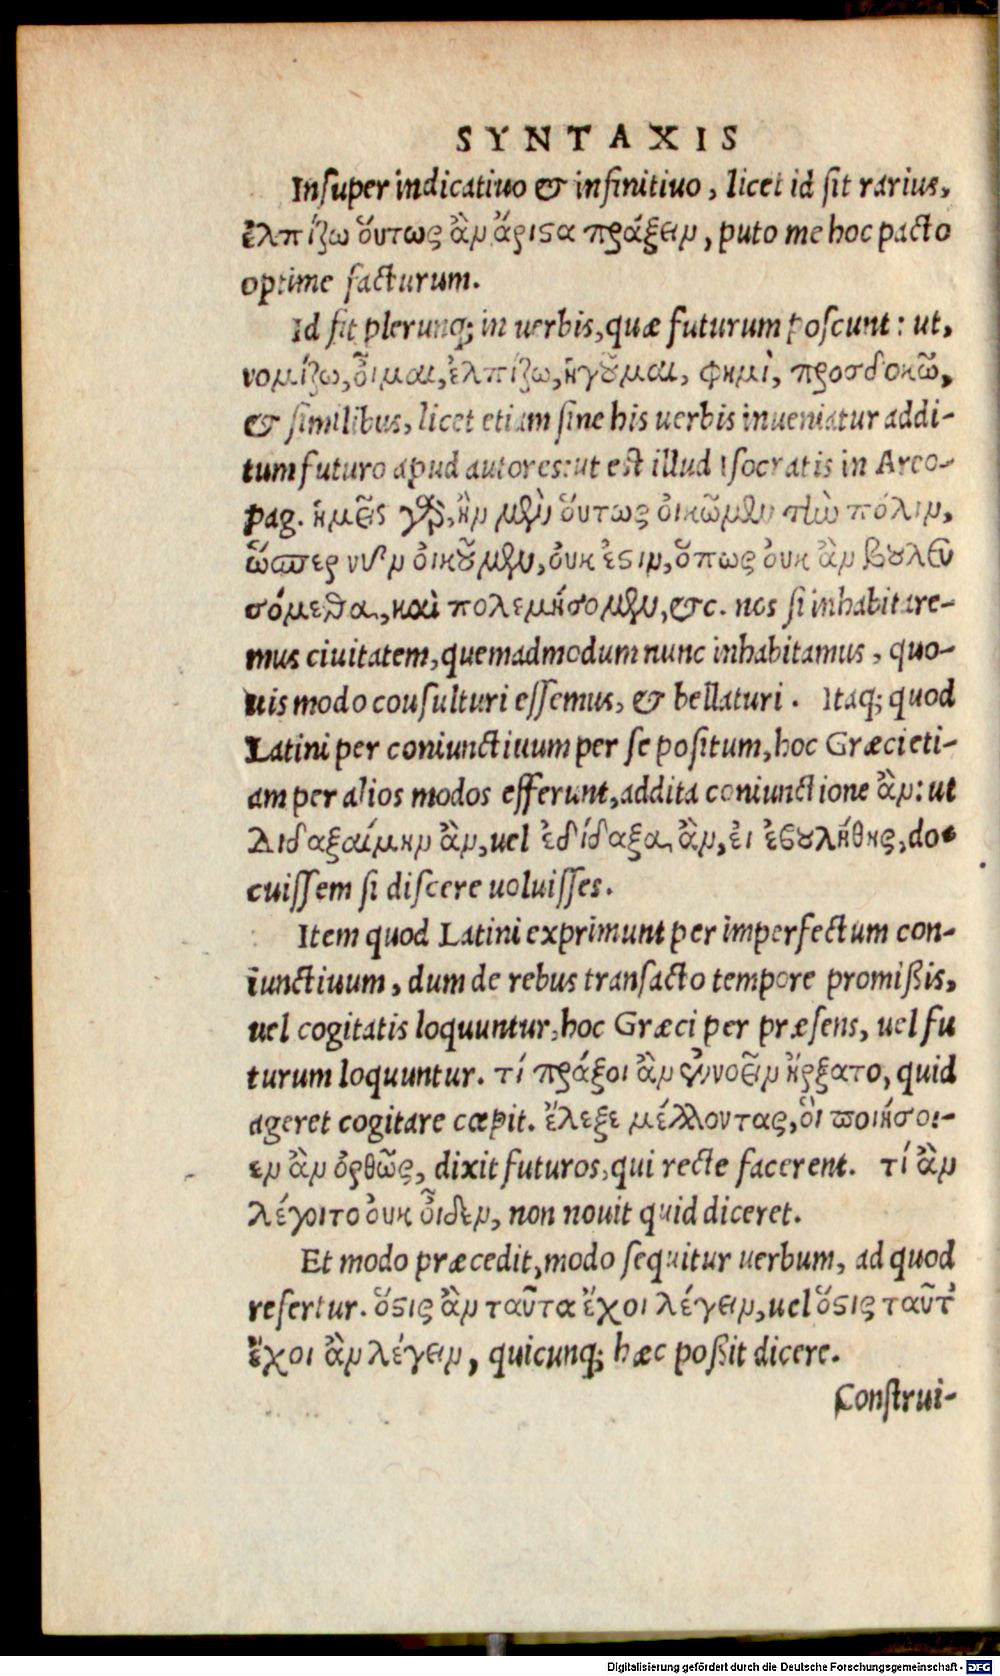 SYNTAXIS
Insuper indicatiuo & infinitiuo, licet id sit rarius,
ἐλπίζω ὅυτως ἂν ἄριϛα πράξειν, puto me hoc pacto
optime facturum.
Id fit plerunq; in uerbis, quæ futurum poscunt: ut,
νομίζω, ὄιμαι, ἐλπίζω, ἡγοῦμαι, φημὶ, προσδοκῶ,
& similibus, licet etiam sine his uerbis inueniatur addi-
tum futuro apud autores: ut est illud Isocratis in Areo-
pag. ἡμεῖς γὰρ, ἢν μὲν ὅυτως ὀικῶμεν τὴν πόλιν,
ὥσπερ νῦν ὀικοῦμεν, ὀυκ ἔϛιν, ὅπως ὀυκ ἂν βουλευ
σόμεθα, καὶ πολεμήσομεν, &c. nos si inhabitare-
mus ciuitatem, quemadmodum nunc inhabitamus, quo-
uis modo cousulturi essemus, & bellaturi. Itaq; quod
Latini per coniunctiuum per se positum, hoc Græci eti-
am per alios modos efferunt, addita coniunctione ἂν: ut
Διδαξαίμην ἂν, uel ἐδίδαξα ἂν, ἐι ἐβουλήθης, do-
cuissem si discere uoluisses.
Item quod Latini exprimunt per imperfectum con-
iunctiuum, dum de rebus transacto tempore promißis,
uel cogitatis loquuntur, hoc Græci per præsens, uel fu
turum loquuntur. τί πράξοι ἂν ἐννοεῖν ἤρξατο, quid
ageret cogitare cœpit. ἔλεξε μέλλοντας, ὃι ποιήσοι-
εν ἂν ὀρθῶς, dixit futuros, qui recte facerent. τί ἂν
λέγοιτο ὀυκ ὄιδεν, non nouit quid diceret.
Et modo præcedit, modo sequitur uerbum, ad quod
refertur. ὅϛις ἂν ταῦτα ἔχοι λέγειν, uel ὅϛις ταῦτ'
ἔχοι ἂν λέγειν, quicunq; hæc poßit dicere.
Construi-
Digitalisierung gefördert durch die Deutsche Forschungsgemeinschaft - DFG